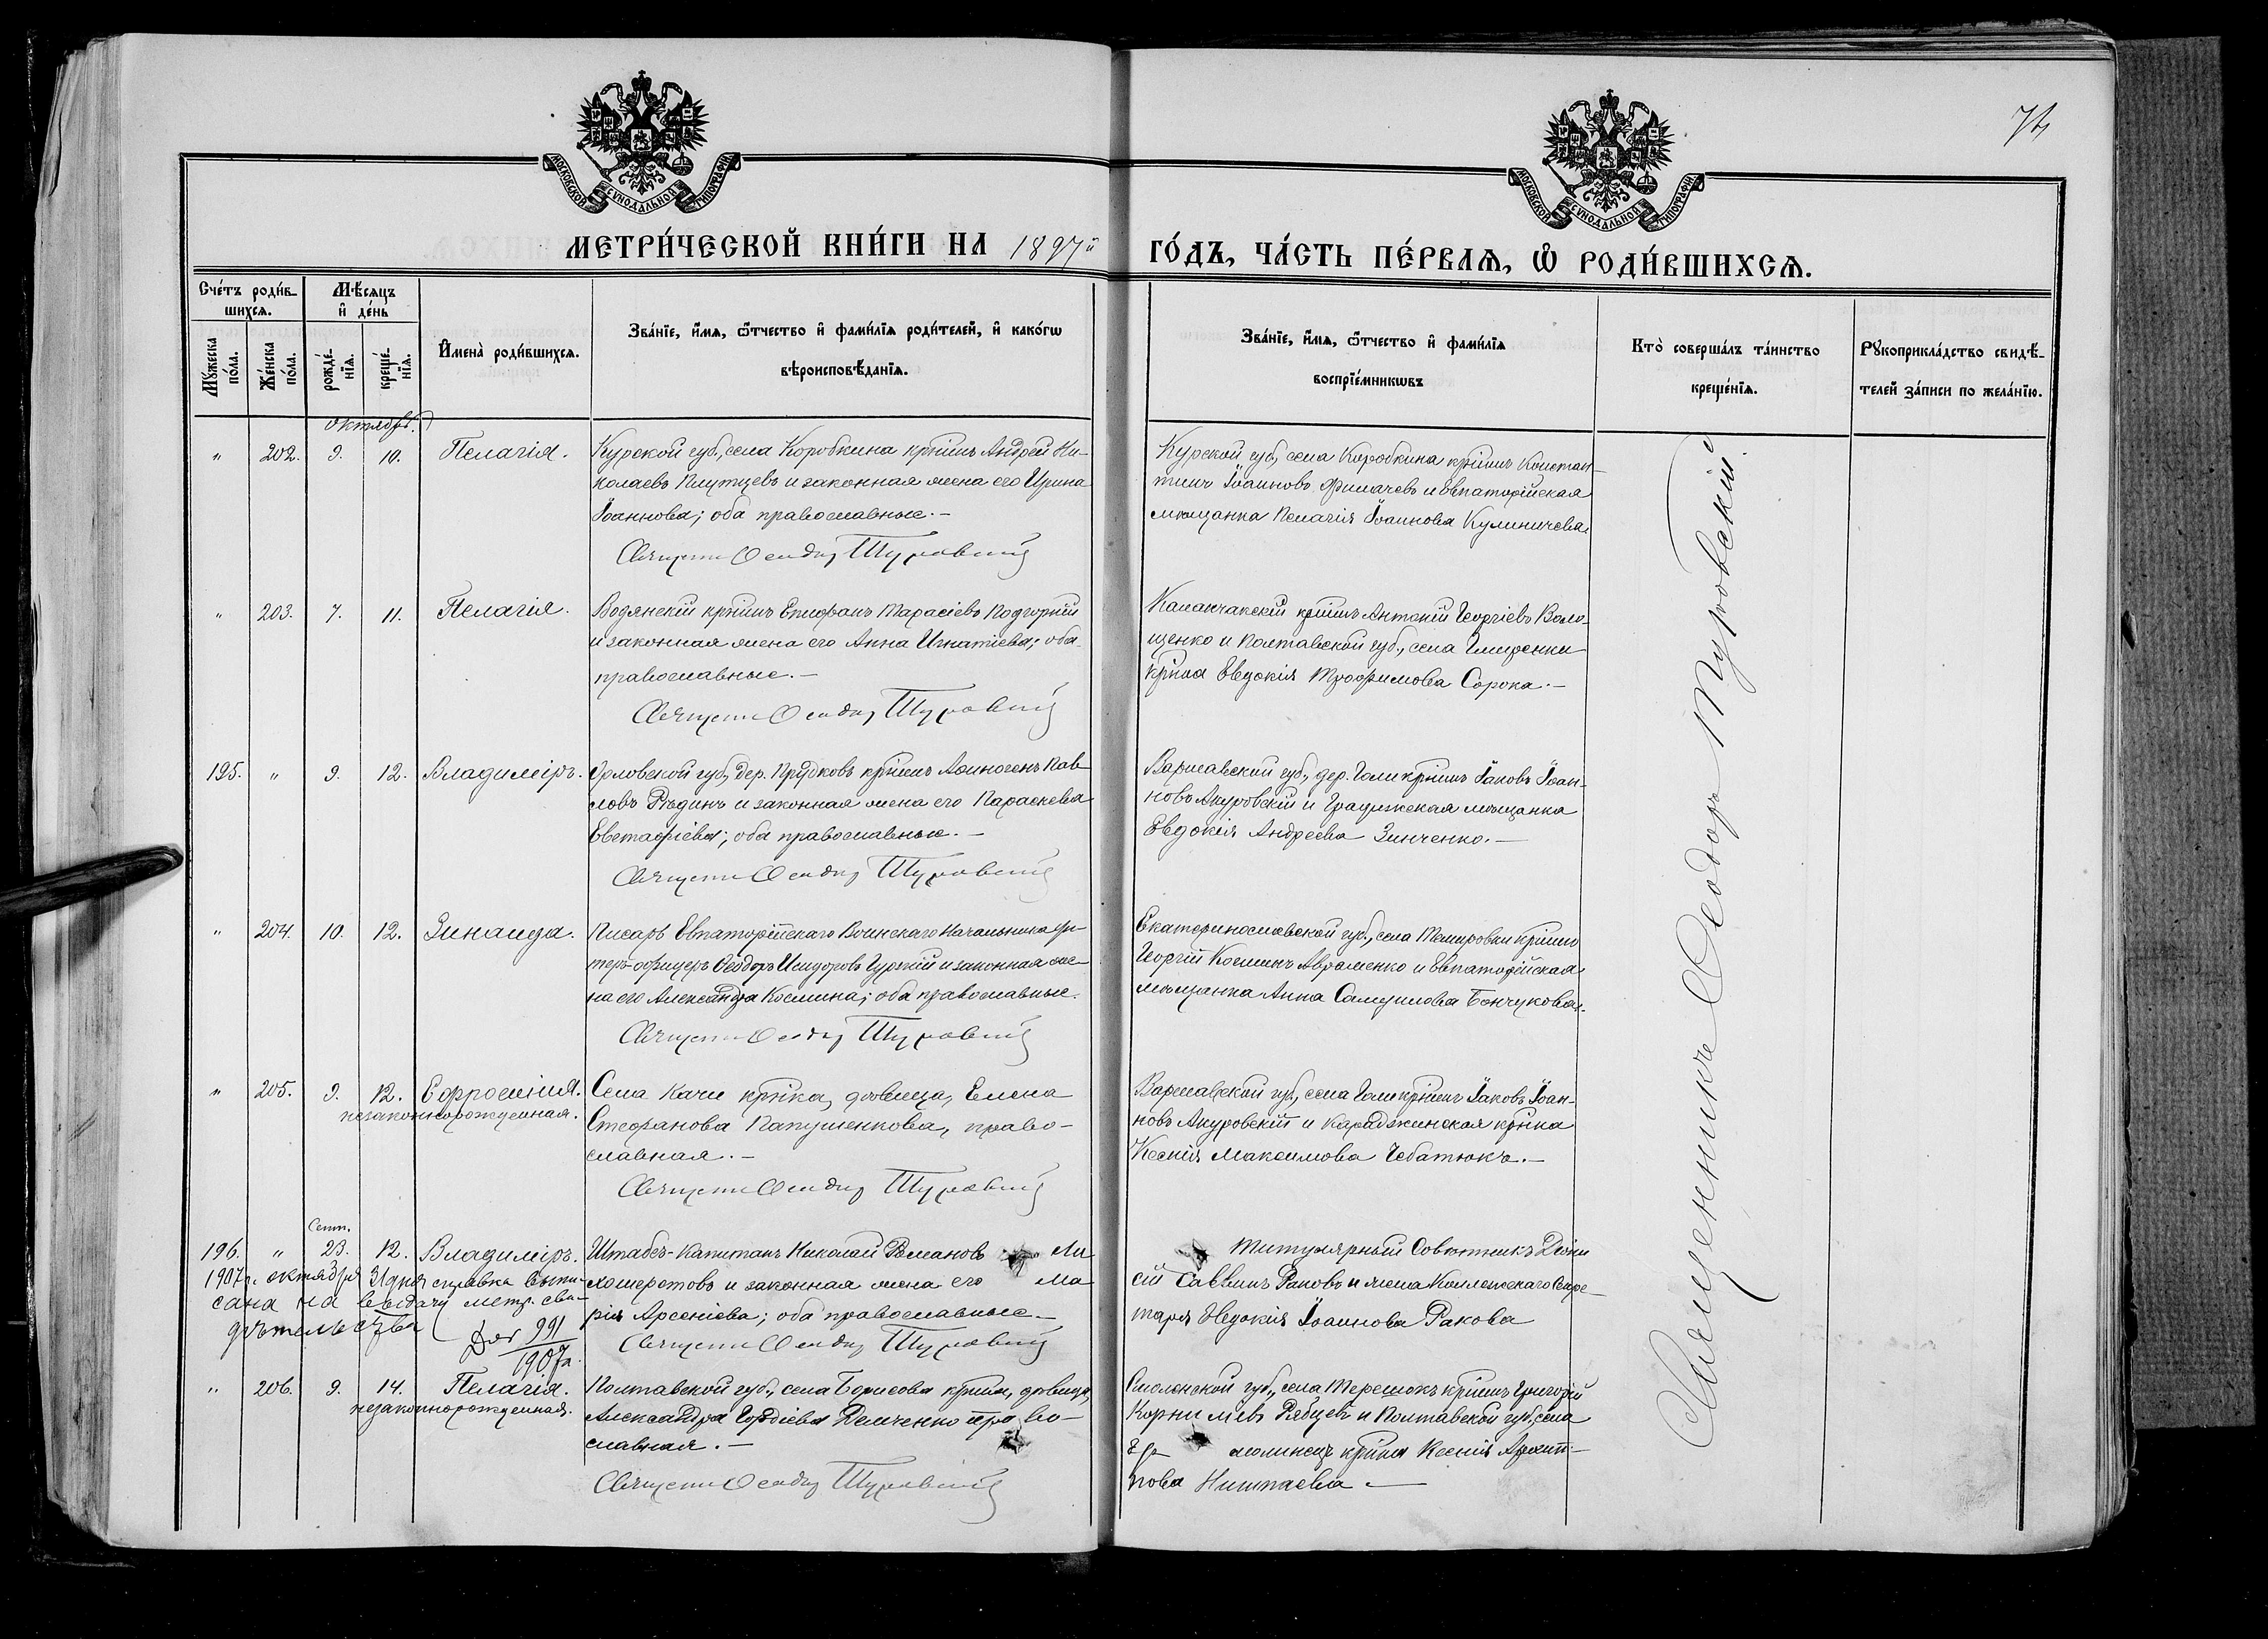 74
МОСКОВСКОЙ СУНОДАЛЬНОЙ ТИПОГРАФІИ
МОСКОВСКОЙ СУНОДАЛЬНОЙ ТИПОГРАФІИ
МЕТРИ́ЧЕСКОЙ КНИ́ГИ НА 1897й ГО́ДЪ, ЧА́СТЬ ПЕ́РВАѦ, Ѽ РОДИ́ВШИХСѦ.
Сче́тъ роди́в-
шихсѧ.
Мꙋ́жеска по́ла.
Же́нска по́ла.
Мѣ́сѧцъ
и҆ де́нь
рожде́-нїѧ.
креще́-нїѧ.
И҆мена̀ роди́вшихсѧ.
Зва́нїе, и҆́мѧ, ѻ҆́тчество и҆ фами́лїѧ роди́телей, и҆ како́гѡ
вѣроисповѣ́данїѧ.
Зва́нїе, и҆́мѧ, ѻ҆́тчество и҆ фами́лїѧ
воспрїе́мникѡвъ
Кто̀ соверша́лъ та́инство
креще́нїѧ.
Рꙋкоприкла́дство свидѣ́-
телей за́писи по жела́нїю.
Октябрь.
" 202. 9. 10. Пелагія.
Курской губ., села Коробкина кр̃нинъ Андрей Ни-
колаевъ Плутцевъ и законная жена его Ирина
Іоаннова; оба православные.-
Священникъ Ѳеодоръ Туровскій
Курской губ., села Коробкина кр̃нинъ Констан-
тинъ Іоанновъ и Евпаторійская
мѣщанка Пелагія Іоаннова Кулиничева.
" 203. 7. 11. Пелагія.
Водянскій кр̃нинъ Епифанъ Тарасіевъ Подгорный
и законная жена его Анна Игнатіева; оба
православные.-
Священникъ Ѳеодоръ Туровскій
Каланчакскій кр̃нинъ Антоній Георгіевъ Воло-
щенко и Полтавской губ., села
кр̃нка Евдокія Трофимова Сорока.-
195. " 9. 12. Владиміръ.
Орловской губ., дер. Прудковъ кр̃нинъ Аѳиногенъ Пав-
ловъ Рѣдинъ и законная жена его Параскева
Евстафіева; оба православные.-
Священникъ Ѳеодоръ Туровскій
Варшавской губ., дер. Голи кр̃нинъ Іаковъ Іоан-
новъ Акуровскій и Градижская мѣщанка
Евдокія Андреева Зинченко.-
" 204. 10. 12. Зинаида.
Писарь Евпаторійскаго Воинскаго Начальника ун-
теръ-офицеръ Ѳеодоръ Исидоровъ Гурскій и законная же-
на его Александра Космина; оба православные.
Священникъ Ѳеодоръ Туровскій
Екатеринославской губ., села Темировки кр̃нинъ
Георгій Косминъ Авраменко и Евпаторійская
мѣщанка Анна Самуилова Бончукова.
" 205. 9. 12. Ефросинія.
незаконнорожденная.
Села Качи кр̃нка, дѣвица, Елена
Стефанова Папушенкова, право-
славная.-
Священникъ Ѳеодоръ Туровскій
Варшавской губ., села Голи кр̃нинъ Іаковъ Іоан-
новъ Акуровскій и Караджинская кр̃нка
Ксенія Максимова Чебатюкъ.-
Сент.
196. " 23. 12. Владиміръ.
1907г. октября 31 дня справка выпи-
сана на выдачу метр. сви-
дѣтельства
991
1907г.
Штабсъ-Капитанъ Николай Романовъ Ли-
хошерстовъ и законная жена его Ма-
рія Арсеніева; оба православные-
Священникъ Ѳеодоръ Туровскій
Титулярный Совѣтникъ Діони-
сій Саввинъ Раковъ и жена Коллежскаго Секре-
таря Евдокія Іоаннова Ракова
" 206. 9. 14. Пелагія.
незаконнорожденная.
Полтавской губ., села Борисова кр̃нка, дѣвица,
Александра Гордіева Демченко право-
славная.-
Священникъ Ѳеодоръ Туровскій
Смоленской губ., села Терешокъ кр̃нинъ Григорій
Корниліевъ Рябцевъ и Полтавской губ., села
кр̃нка Ксенія Архип-
пова
Священникъ Ѳеодоръ Туровскій